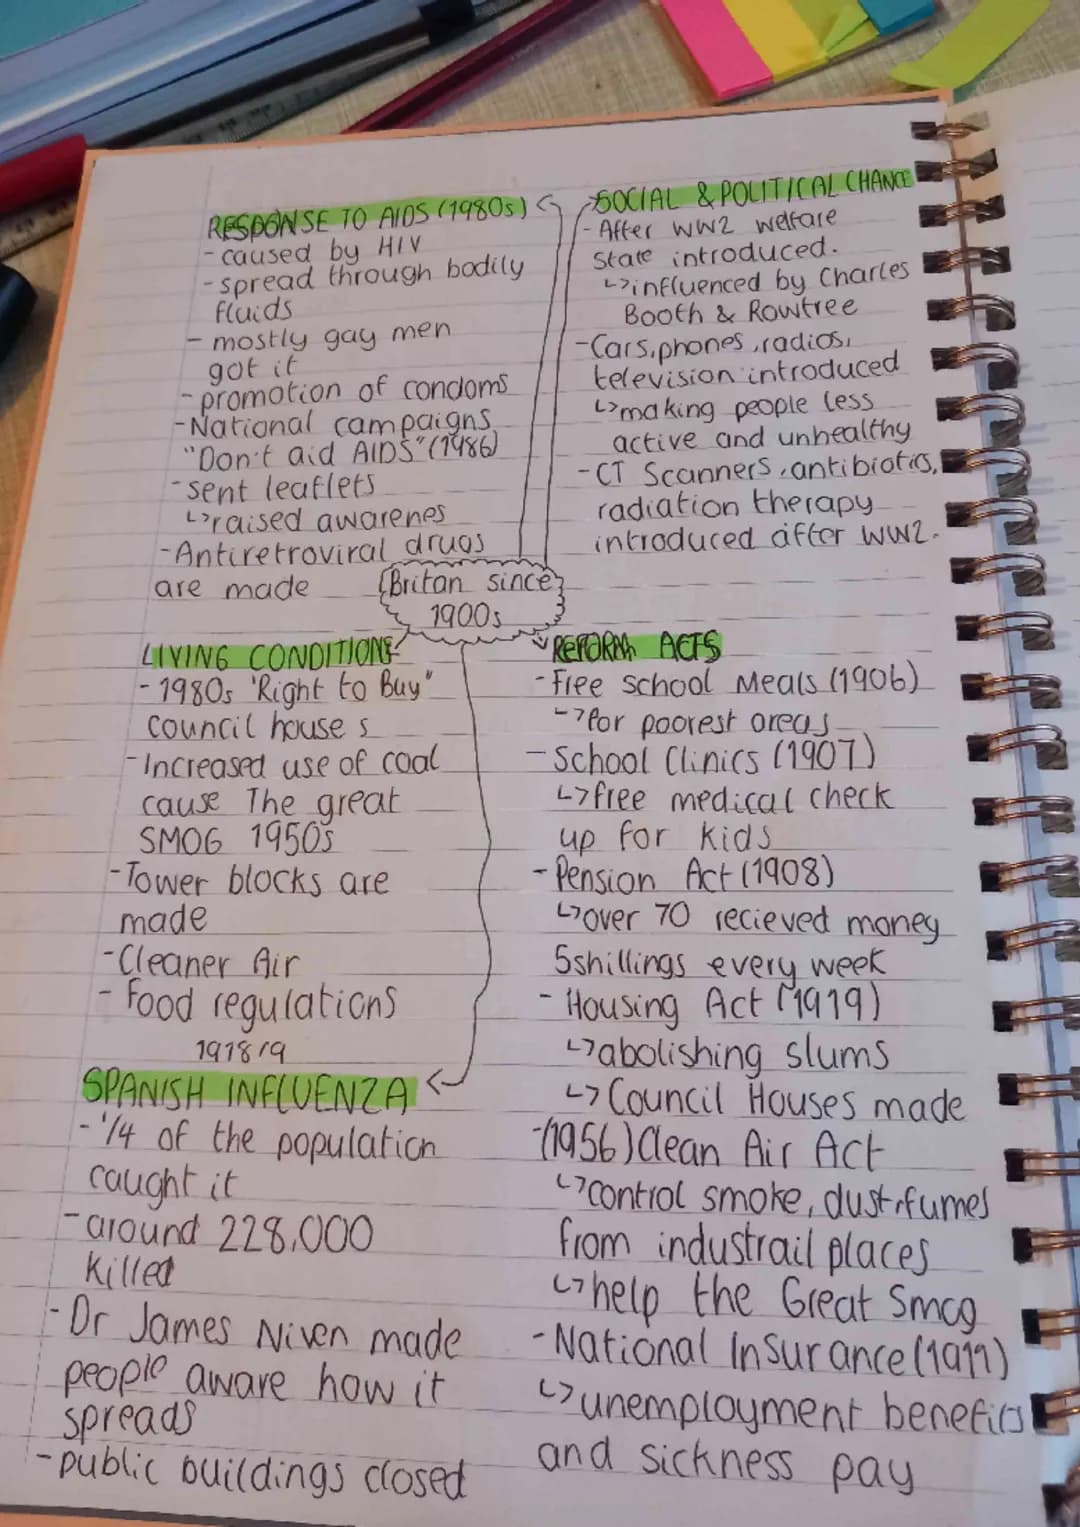 RESPONSE TO AIDS (1980s)
- caused by HIV
- spread through bodily
fluids
- mostly gay men
got it
- promotion of condoms
- National campaigns
"Don't aid AIDS" (1986)
- sent leaflets
↳ raised awarenes
- Antiretroviral drugs
are made
SOCIAL & POLITICAL CHANGE
- After WW2 welfare
State introduced.
↳ influenced by Charles
Booth & Rowtree
- Cars, phones, radios,
television introduced
↳ making people less
active and unhealthy
- CT Scanners, antibiotics,
radiation therapy
introduced after WW2.
Britan since
1900s
LIVING CONDITIONS
- 1980s 'Right to Buy"
council house s
- Increased use of coal
cause The great
SMOG 1950s
- Tower blocks are
made
- Cleaner Air
- Food regulations
1918/9
SPANISH INFLUENZA
- 1/4 of the population
caught it
- around 228,000
killed
- Dr James Niven made
people aware how it
spreads
- public buildings closed
REFORM ACTS
- Free school Meals (1906)
↳ for poorest areas
- School Clinics (1907)
↳ free medical check
up for kids
- Pension Act (1908)
↳ over 70 recieved money
5shillings every week
- Housing Act (1919)
↳ abolishing slums
↳ Council Houses made
- (1956) Clean Air Act
↳ control smoke, dust, fumes
from industrail places
↳ help the Great Smog
- National Insurance (1911)
↳ unemployment benefits
and sickness pay